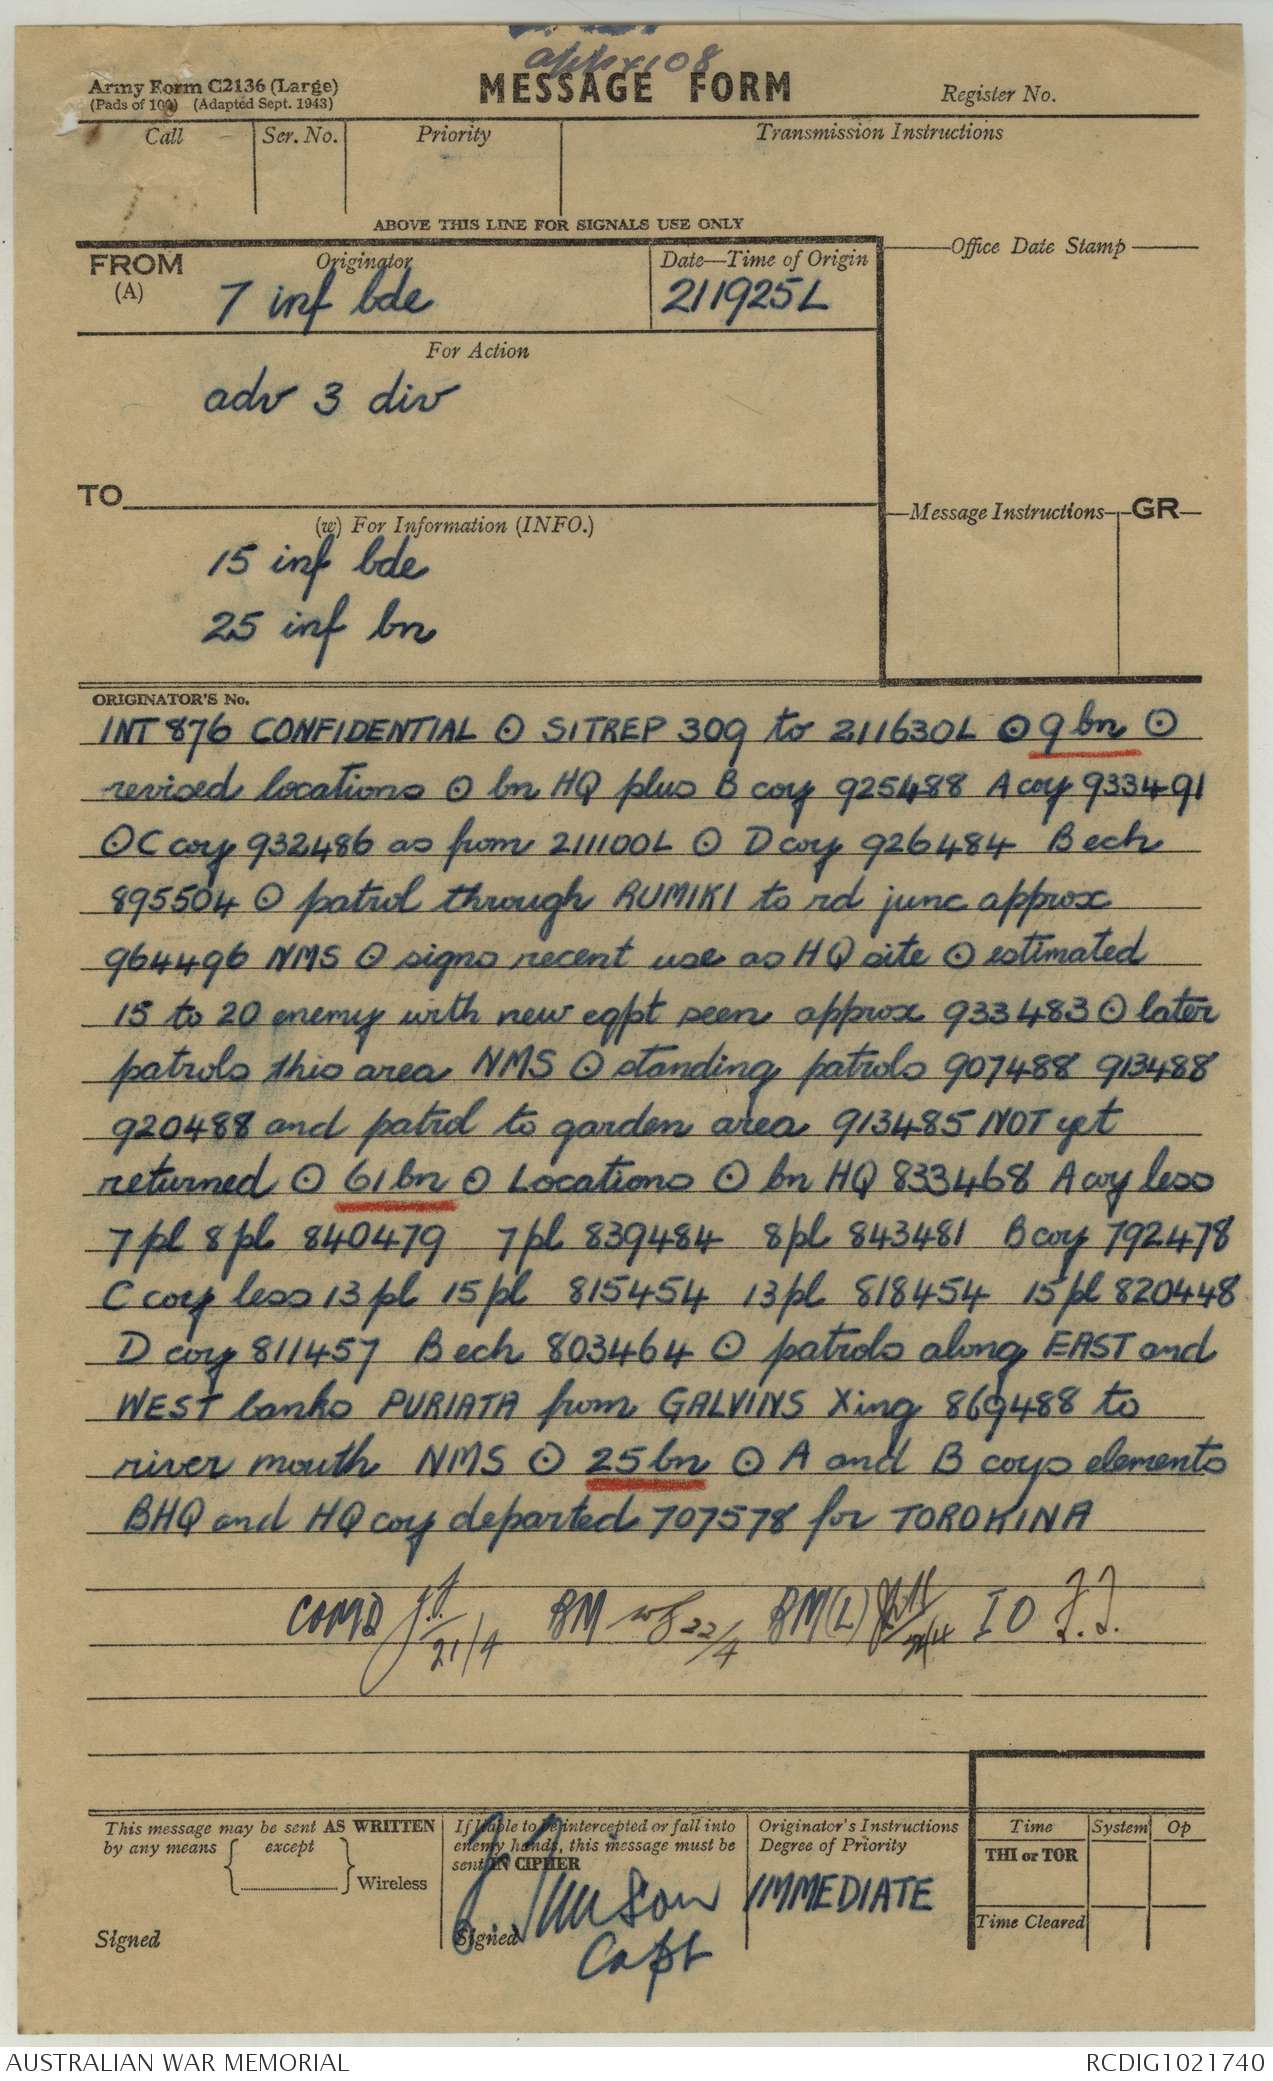 appx 108
Army Form C2136 (Large)
(Pads of 100) (Adapted Sept. 1943)
MESSAGE FORM
Register No.
Call
Ser. No.
Priority
Transmission Instructions
ABOVE THIS LINE FOR SIGNALS USE ONLY
FROM
(A)
Originator
7 inf bde
Date—Time of Origin
211925L
Office Date Stamp
For Action
adv 3 div
TO
(w) For Information (INFO.)
15 inf bde
25 inf bn
Message Instructions
GR
ORIGINATOR'S No.
INT 876 CONFIDENTIAL ⊙ SITREP 309 to 211630L ⊙ 9 bn ⊙
revised locations ⊙ bn HQ plus B coy 925488 A coy 933491
⊙ C coy 932486 as from 211100L ⊙ D coy 926484 B ech
895504 ⊙ patrol through RUMIKI to rd junc approx
964496 NMS ⊙ signs recent use as HQ site ⊙ estimated
15 to 20 enemy with new eqpt seen approx 933483 ⊙ later
patrols this area NMS ⊙ standing patrols 907488 913488
920488 and patrol to garden area 913485 NOT yet
returned ⊙ 61 bn ⊙ Locations ⊙ bn HQ 833468 A coy less
7 pl 8 pl 840479 7 pl 839484 8 pl 843481 B coy 792478
C coy less 13 pl 15 pl 815454 13 pl 818454 15 pl 820448
D coy 811457 B ech 803464 ⊙ patrols along EAST and
WEST banks PURIATA from GALVINS Xing 869488 to
river mouth NMS ⊙ 25 bn ⊙ A and B coys elements
BHQ and HQ coy departed 707578 for TOROKINA
COMD 21/4 BM 22/4 BM(L) IO
This message may be sent AS WRITTEN
by any means
except
Wireless
Signed
If liable to be intercepted or fall into
enemy hands, this message must be
sent IN CIPHER
Signed
Capt
Originator's Instructions
Degree of Priority
IMMEDIATE
Time
System
Op
THI or TOR
Time Cleared
AUSTRALIAN WAR MEMORIAL
RCDIG1021740